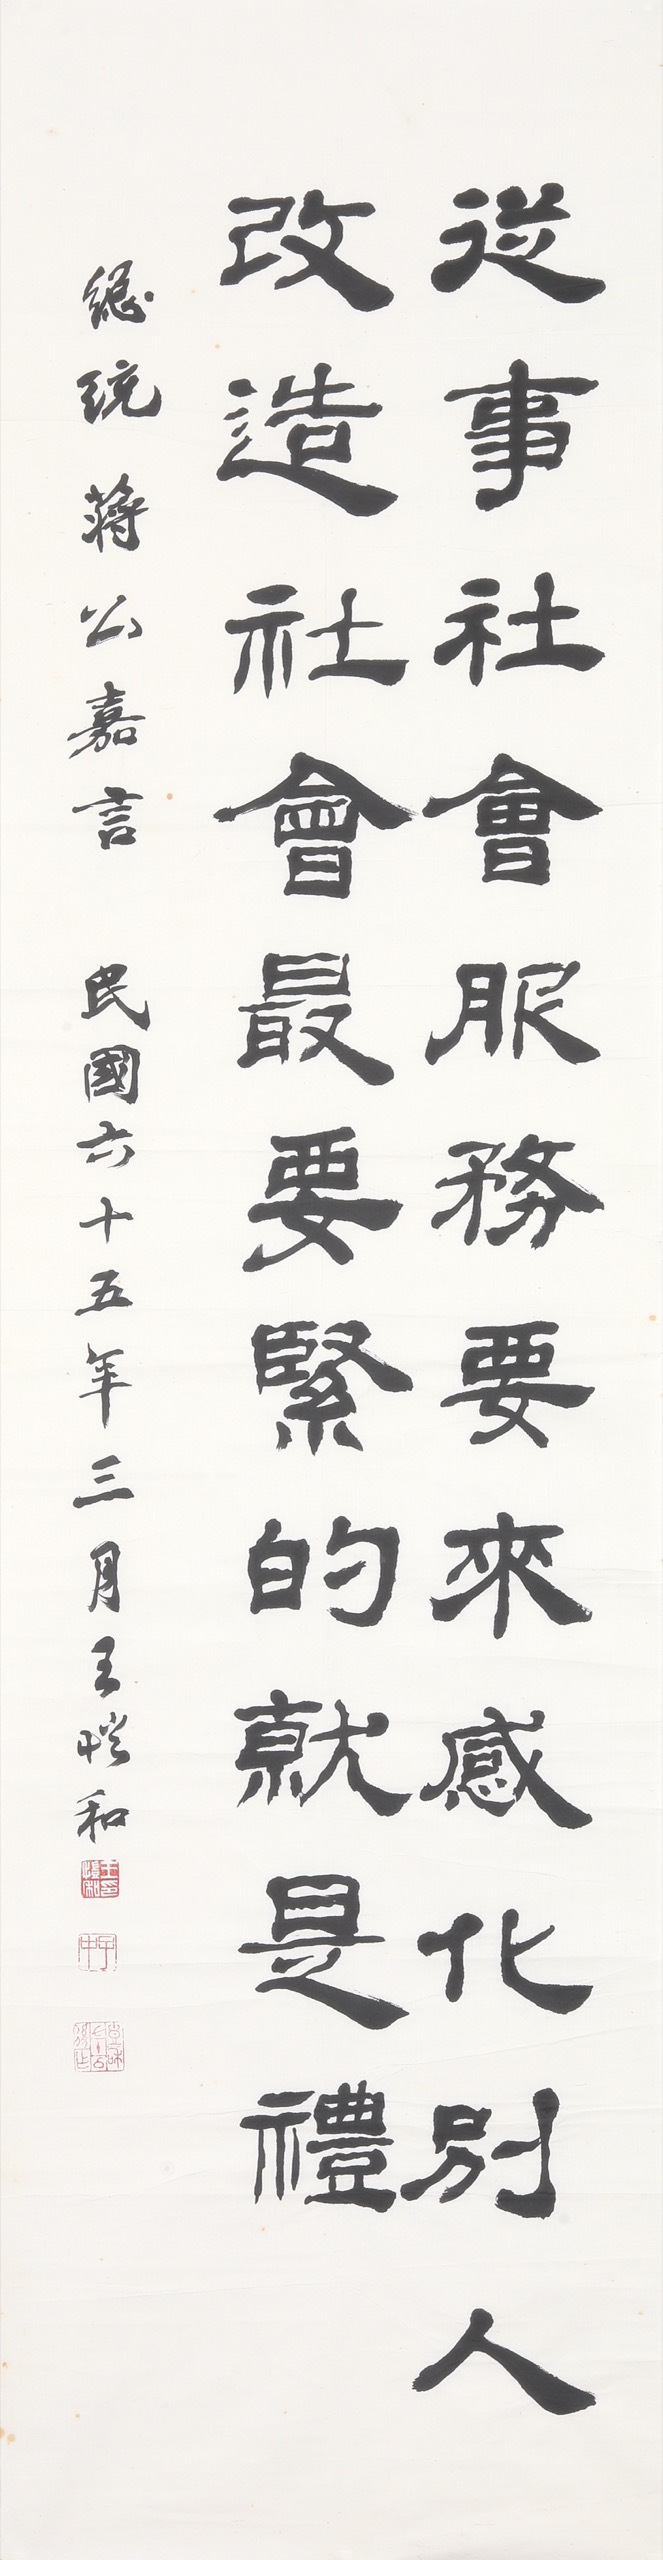 從事社會服務要來感化別人
改造社會最要緊的就是禮
總統蔣公嘉言 民國六十五年三月王愷和